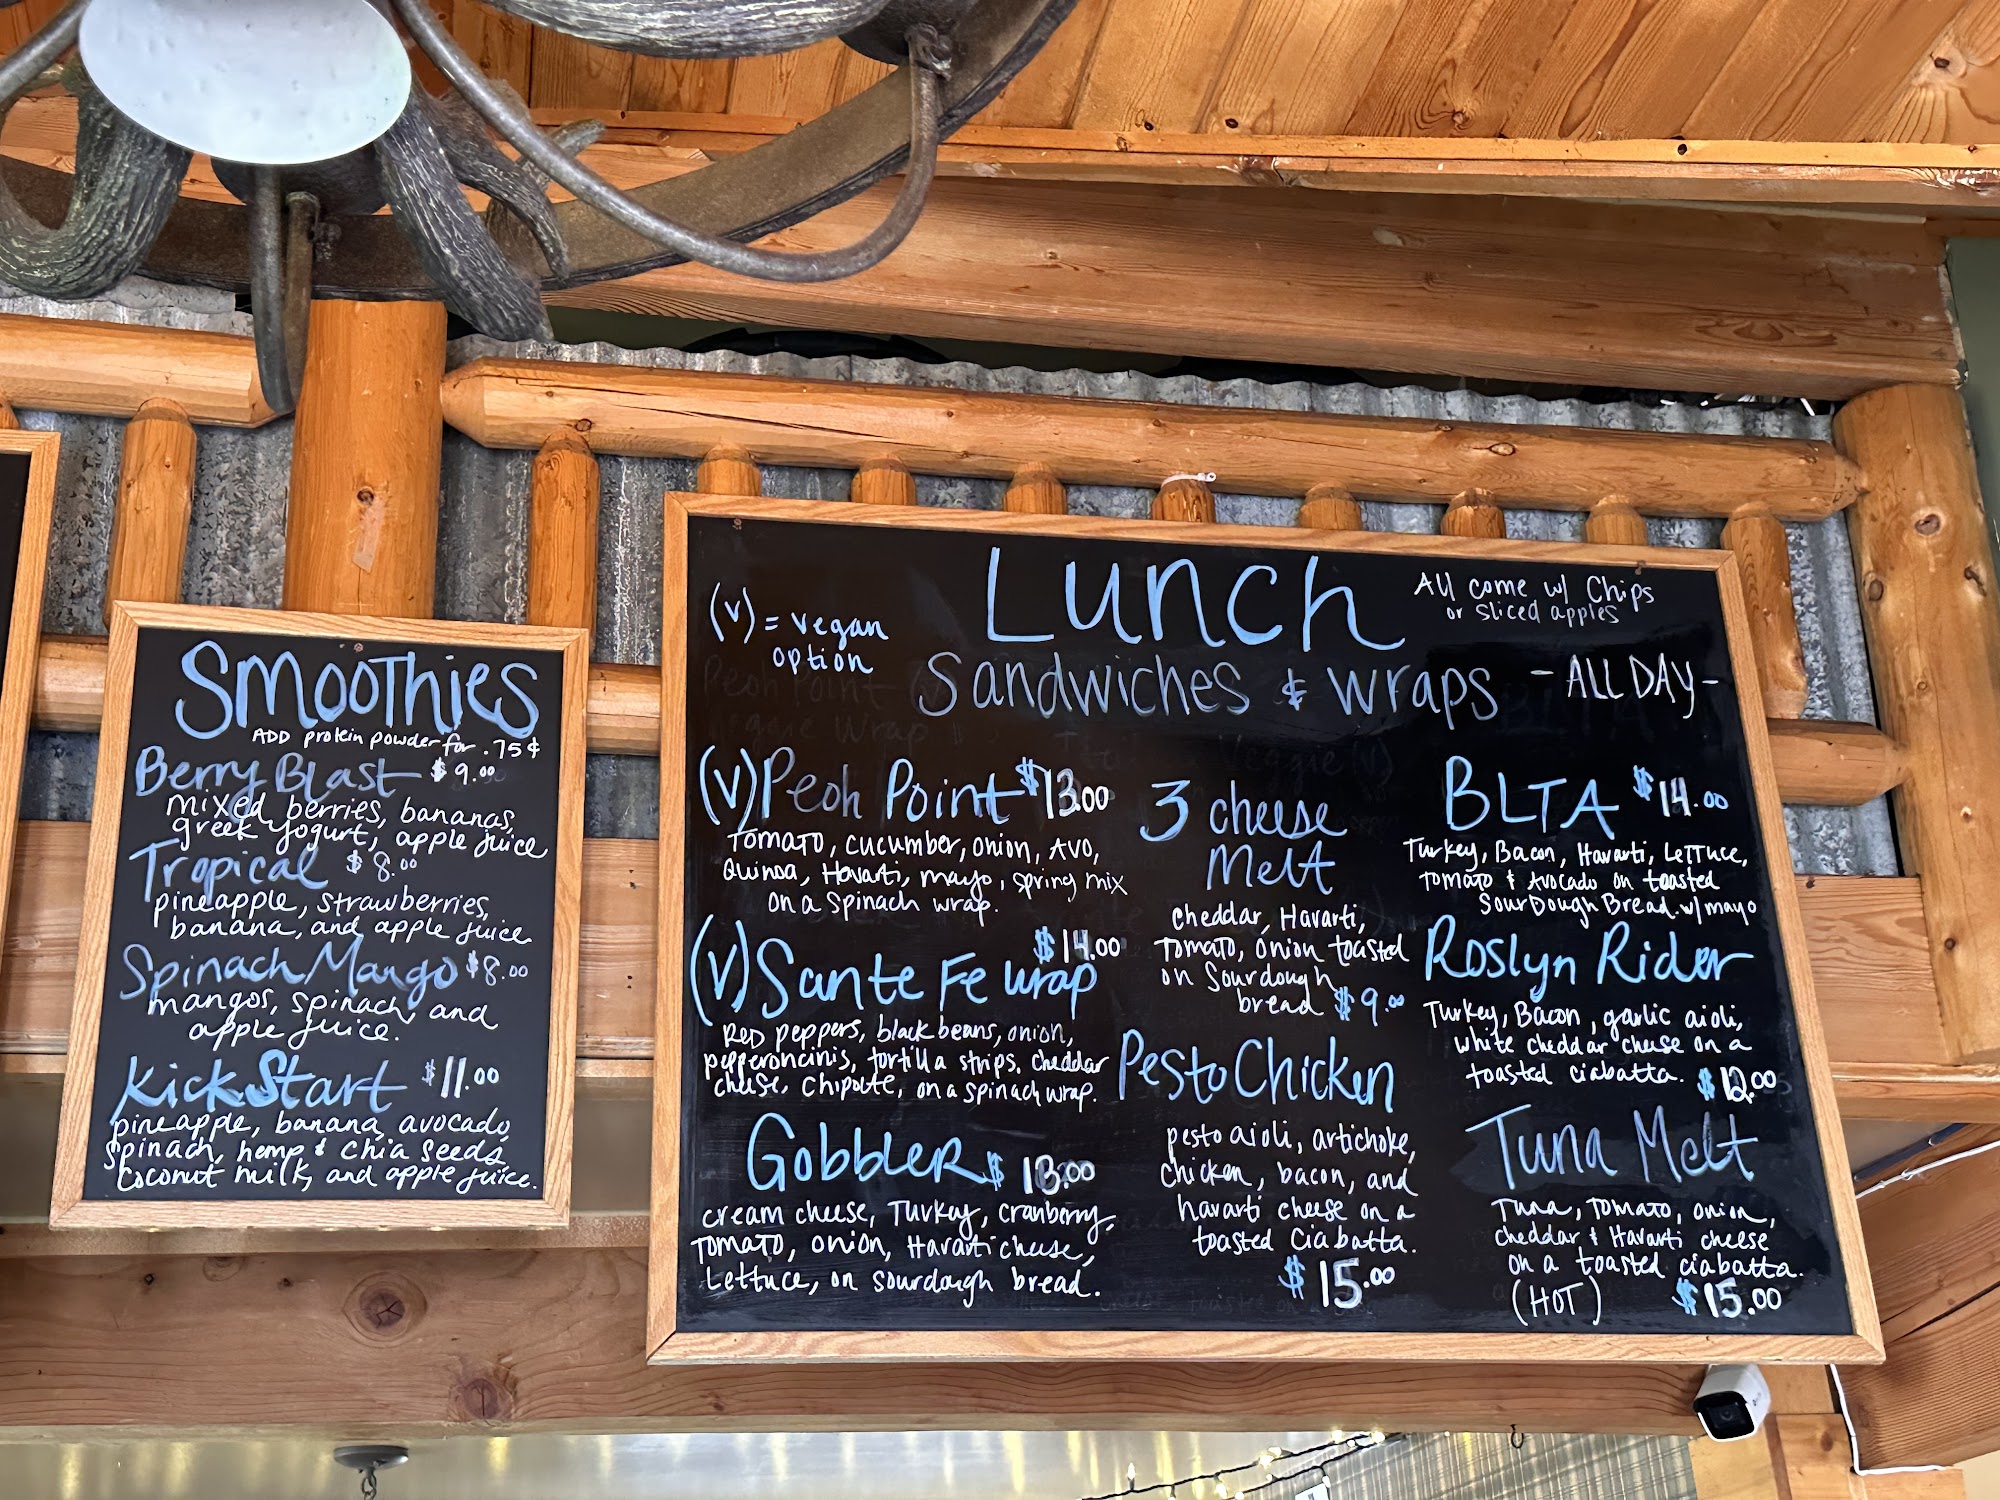 Smoothies
ADD protein powder for .75¢
Berry Blast $9.00
mixed berries, bananas,
greek yogurt, apple juice
Tropical $8.00
pineapple, strawberries,
banana, and apple juice.
Spinach Mango $8.00
mangos, spinach, and
apple juice.
Kick Start $11.00
pineapple, banana, avocado,
spinach, hemp & chia seeds,
coconut milk, and apple juice.
(v) = vegan
option
Lunch
All come w/ Chips
or sliced apples
Sandwiches & wraps - ALL DAY -
(v) Peoh Point $13.00
Tomato, cucumber, onion, Avo,
Quinoa, Havarti, mayo, spring mix
on a spinach wrap.
$14.00
(v) Sante Fe wrap
Red peppers, black beans, onion,
pepperoncinis, tortilla strips, cheddar
cheese, chipolte, on a spinach wrap.
Gobbler $13.00
cream cheese, Turkey, cranberry,
Tomato, onion, Havarti cheese,
Lettuce, on sourdough bread.
3 cheese
Melt
cheddar, Havarti,
Tomato, onion toasted
on Sourdough
bread $9.00
Pesto Chicken
pesto aioli, artichoke,
chicken, bacon, and
havarti cheese on a
toasted Ciabatta.
$15.00
BLTA $14.00
Turkey, Bacon, Havarti, Lettuce,
Tomato & Avocado on toasted
SourDough Bread. w/ mayo
Roslyn Rider
Turkey, Bacon, garlic aioli,
white cheddar cheese on a
toasted ciabatta. $12.00
Tuna Melt
Tuna, Tomato, onion,
cheddar & Havarti cheese
on a toasted ciabatta.
(HOT) $15.00